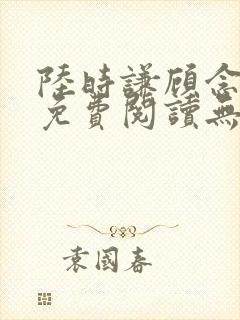 陸時謙顧念
免費閱讀無
袁國春